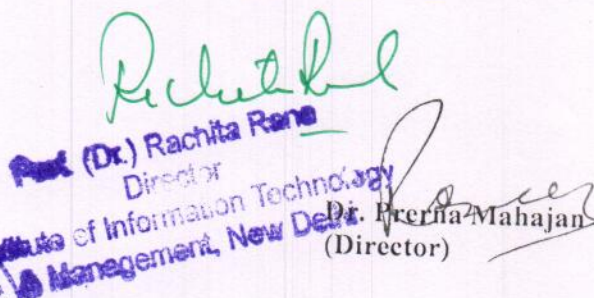 Prof. (Dr.) Rachita Rana
Director
of Information Technology
& Management, New Delhi
Dr. Prerna Mahajan
(Director)